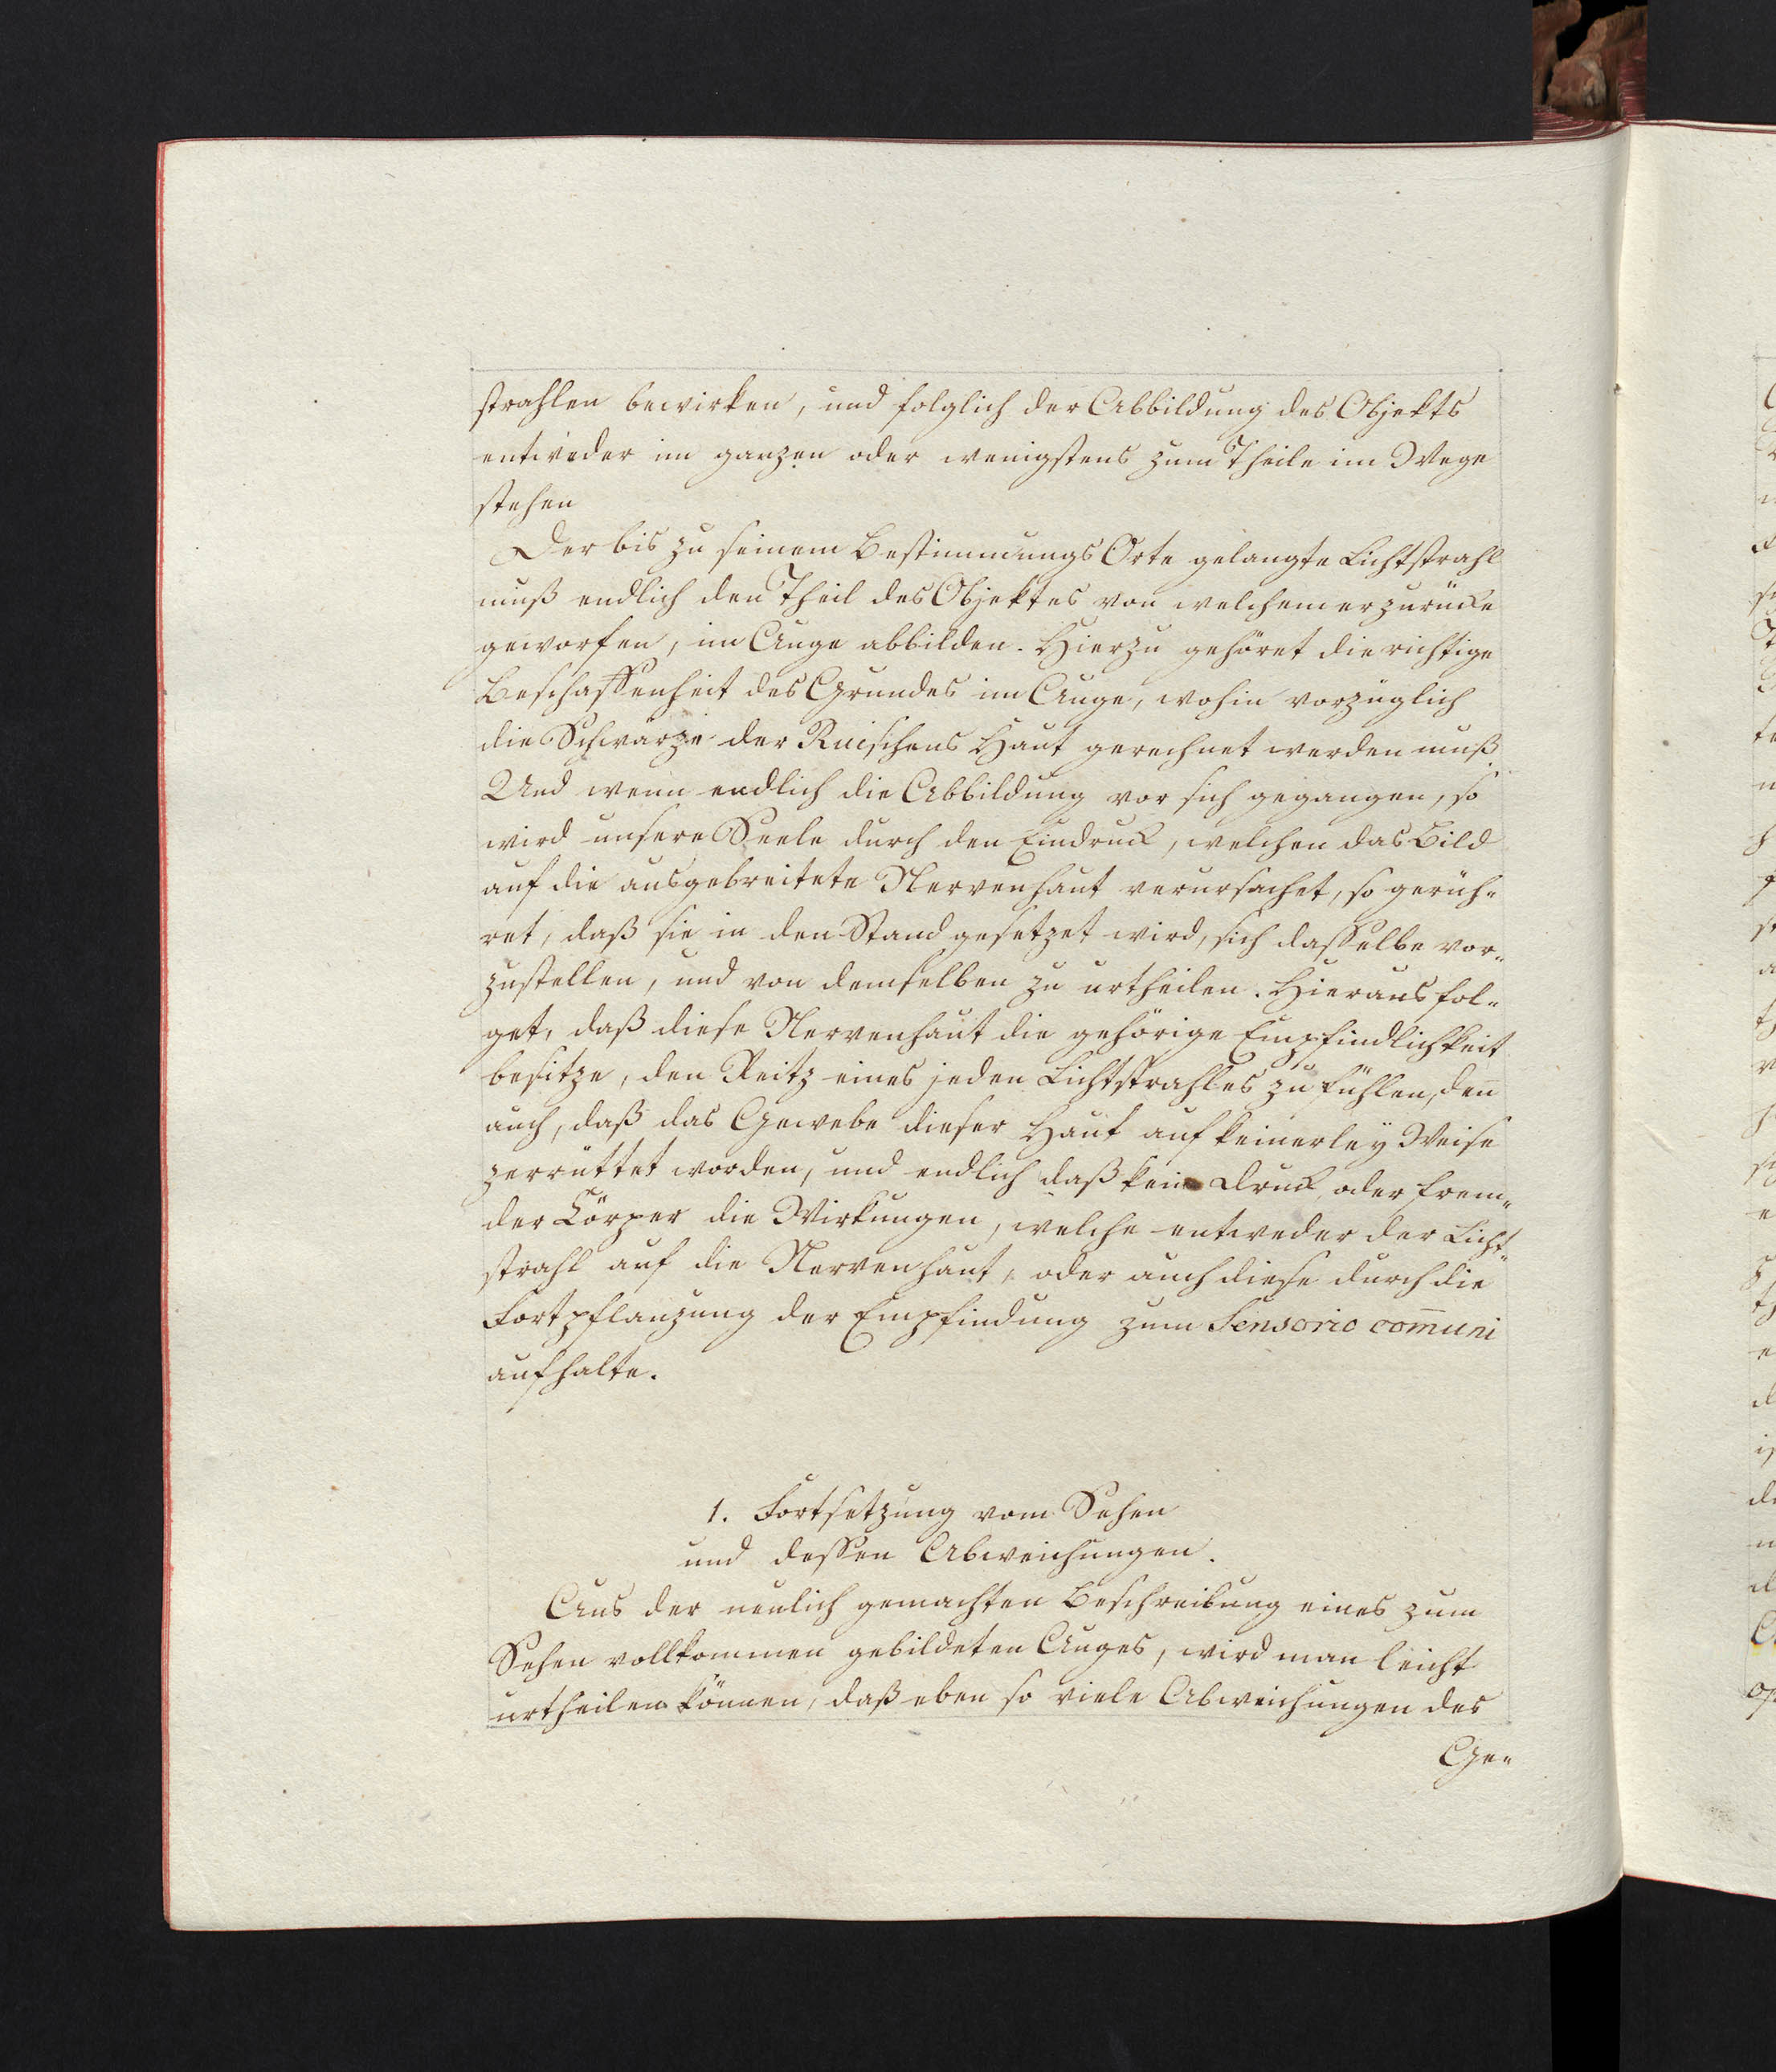 strahlen bewirken, und folglich der Abbildung des Objekts
entweder im ganzen oder wenigstens zum Theile im Wege
stehen
Der bis zu seinem Bestimmungs Orte gelangte Lichtstrahl
muß endlich den Theil des Objektes von welchem er zurücke
geworfen, im Auge abbilden. Hierzu gehöret die richtige
Beschaffenheit des Grundes im Auge, wohin vorzüglich
die Schwärze der Ruischens Haut gerechnet werden muß.
Und wenn endlich die Abbildung vor sich gegangen, so
wird unsere Seele durch den Eindruck, welchen das Bild
auf die ausgebreitete Nervenhaut verursachet, so gerüh-
ret, daß sie in den Stand gesetzet wird, sich dasselbe vor-
zustellen, und von demselben zu urtheilen. Hieraus fol-
get, daß diese Nervenhaut die gehörige Empfindlichkeit
besitze, den Reitz eines jeden Lichtstrahles zu fühlen, den̅
auch, daß das Gewebe dieser Haut auf keinerley Weise
zerrüttet worden, und endlich daß kein Druck, oder frem-
der Cörper die Wirkungen, welche entweder der Licht-
strahl auf die Nervenhaut, oder auch diese durch die
Fortpflanzung der Empfindung zum Sensorio com̅uni
aufhalte.
1. Fortsetzung vom Sehen
und dessen Abweichungen.
Aus der neulich gemachten Beschreibung eines zum
Sehen vollkommen gebildeten Auges, wird man leicht
urtheilen können, daß eben so viele Abweichungen des
Ge-